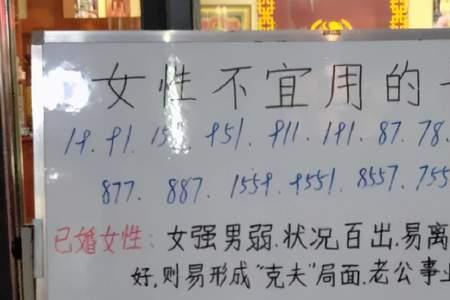 女性不宜用的
19. 91. 159. 951. 911. 191. 87. 78.
877. 887. 1559. 9551. 8557. 755
已婚女性：女强男弱.状况百出.易离
好,则易形成“克夫”局面.老公事业